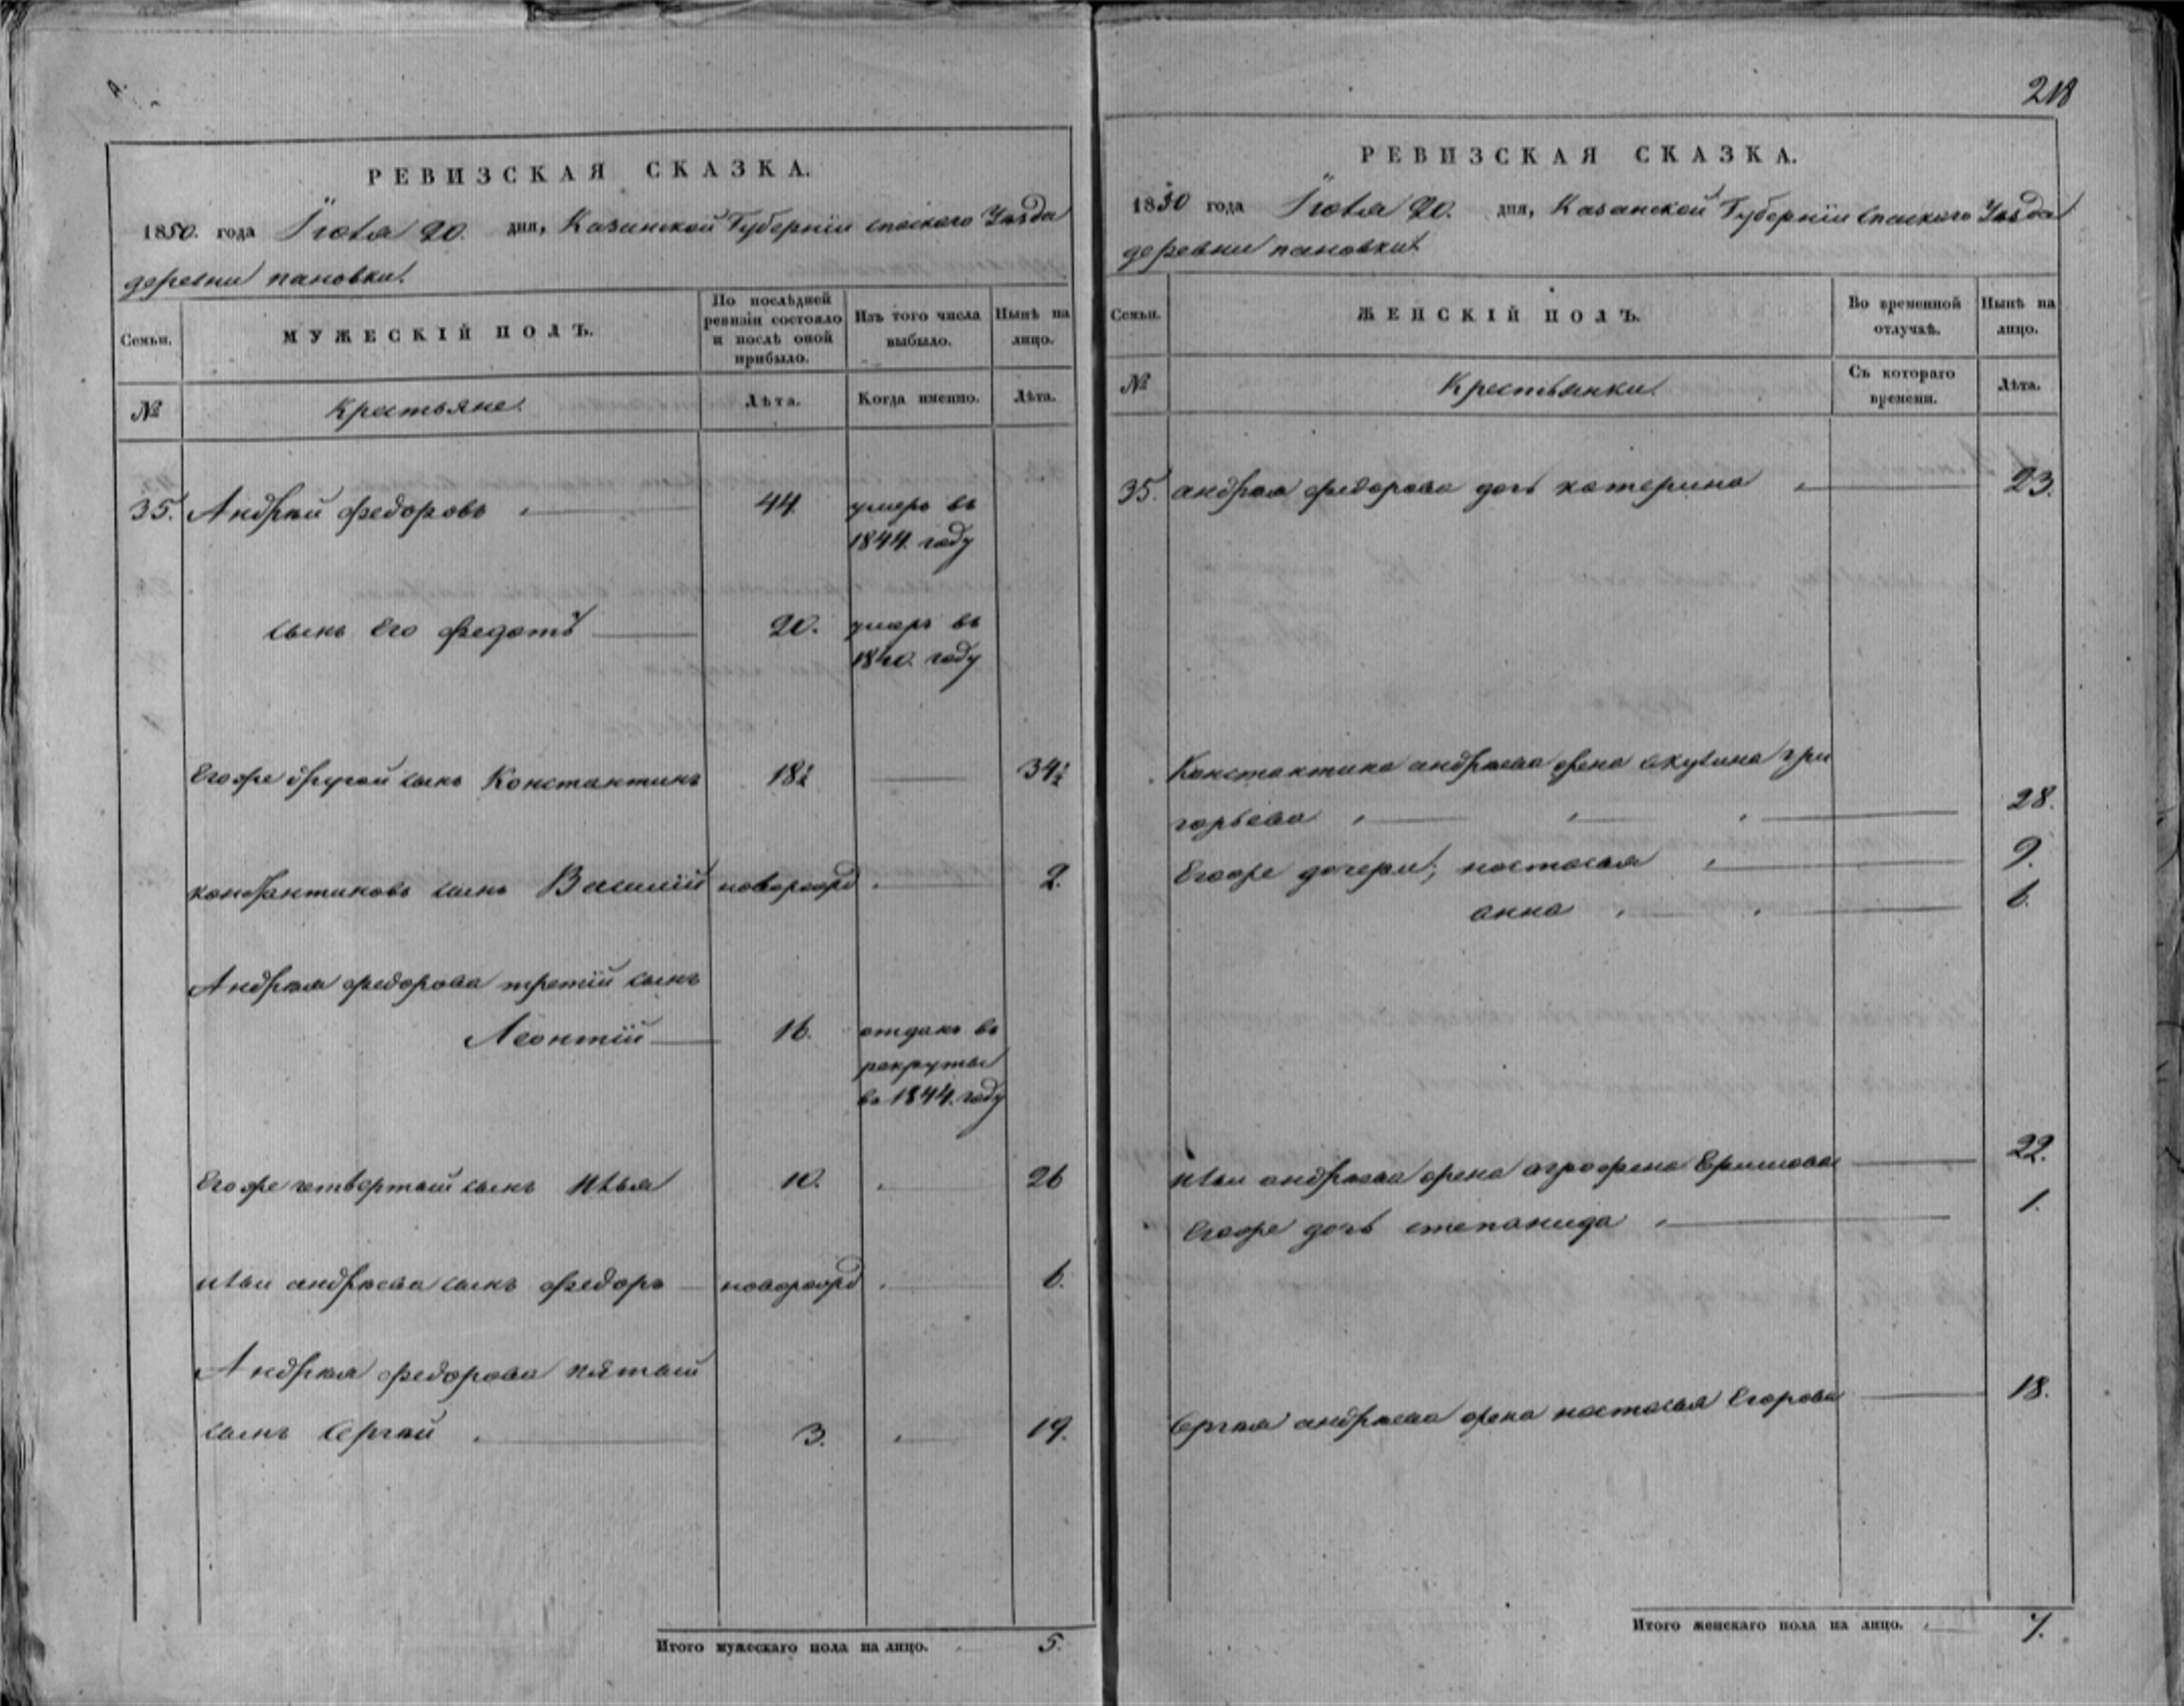 218
РЕВИЗСКАЯ СКАЗКА.
1850. года Iюля 20. дня, Казанской Губернiи спаского Уѣзда
деревни пановки
Семьи.
МУЖЕСКІЙ ПОЛЪ.
По послѣдней ревизіи состояло и послѣ оной прибыло.
Изъ того числа выбыло.
Нынѣ на лицо.
№
Крестьяне
Лѣта.
Когда именно.
Лѣта.
35. Андрѣй федоровъ 44 умеръ въ
1844. году
сынъ его федотъ 20. умеръ въ
1840. году
Егоже другой сынъ Константинъ 18½ 34½
константиновъ сынъ Василiй новорожд 2.
Андрѣя федорова третiй сынъ
Леонтiй 16. отданъ въ
рекруты
въ 1844. году
Егоже четвертый сынъ Илья 10. 26
Ильи андрѣева сынъ федоръ новорожд 6.
Андрѣя федорова пятый
сынъ Сергѣй 3. 19.
Итого мужескаго пола на лицо. 5.
РЕВИЗСКАЯ СКАЗКА.
1850 года Iюля 20. дня, Казанской Губернiи спаского Уѣзда
деревни пановки
Семьи.
ЖЕНСКІЙ ПОЛЪ.
Во временной отлучкѣ.
Нынѣ на лицо.
№
Крестьянки
Съ котораго времени.
Лѣта.
35. андрѣя федорова дочь катерина 23.
Константина андрѣева жена акулина гри
горьева 28.
Егоже дочери; настасья 9.
анна 6.
Ильи андрѣева жена аграфена Ефимова 22.
Егоже дочь степанида 1.
Сергѣя андрѣева жена настасья Егорова 18.
Итого женскаго пола на лицо. 7.